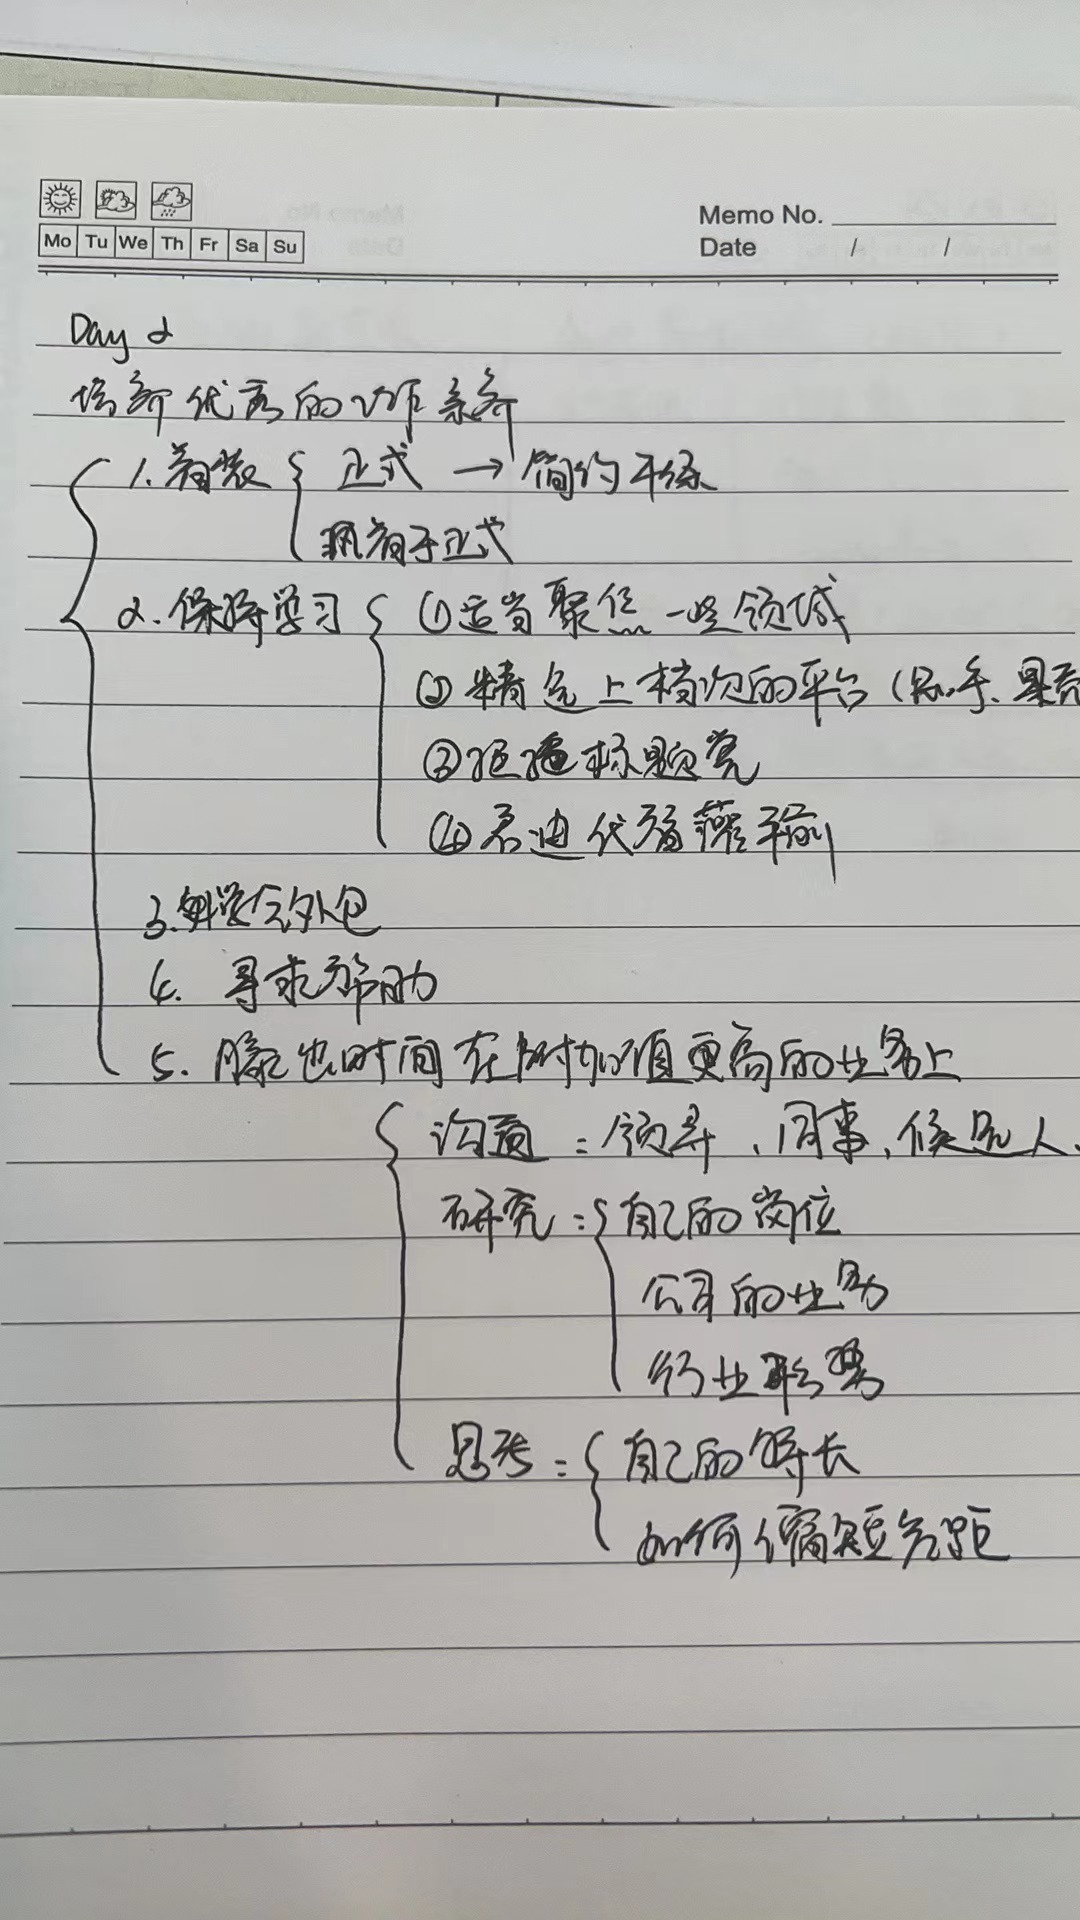 Memo No.
Mo Tu We Th Fr Sa Su
Date / /
Day 2
培养优秀的工作素养
1. 着装 正式 → 简约干练
于正式
2. 保持学习 ① 适当聚焦一些领域
② 精选上档次的平台(知乎、果壳
③ 拒绝标题党
④ 君迪代
3. 学会外包
4. 寻求帮助
5. 腾出时间在附加值更高的业务上
沟通:领导、同事、候选人、
研究:自己的岗位
公司的业务
行业形势
思考:自己的特长
如何缩短差距